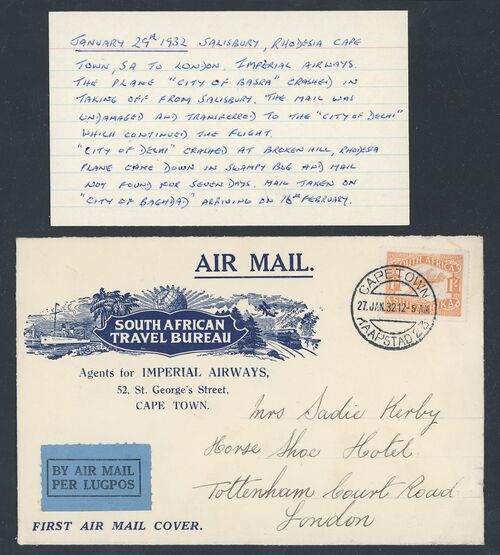 JANUARY 29th 1932 SALISBURY, RHODESIA CAPE
TOWN, SA TO LONDON. IMPERIAL AIRWAYS.
THE PLANE "CITY OF BASRA" CRASHED IN
TAKING OFF FROM SALISBURY. THE MAIL WAS
UNDAMAGED AND TRANSFERRED TO THE "CITY OF DELHI"
WHICH CONTINUED THE FLIGHT.
"CITY OF DELHI" CRASHED AT BROKEN HILL, RHODESIA
PLANE CAME DOWN IN SWAMPY BOG AND MAIL
NOT FOUND FOR SEVEN DAYS. MAIL TAKEN ON
"CITY OF BAGHDAD" ARRIVING ON 16th FEBRUARY.
AIR MAIL.
SOUTH AFRICAN
TRAVEL BUREAU
Agents for IMPERIAL AIRWAYS,
52, St. George's Street,
CAPE TOWN.
SOUTH AFRICA
1/-
CAPETOWN
27.JAN.32.12-5 AM
KAAPSTAD
Mrs Sadie Kerby
Horse Shoe Hotel
Tottenham Court Road
London
BY AIR MAIL
PER LUGPOS
FIRST AIR MAIL COVER.